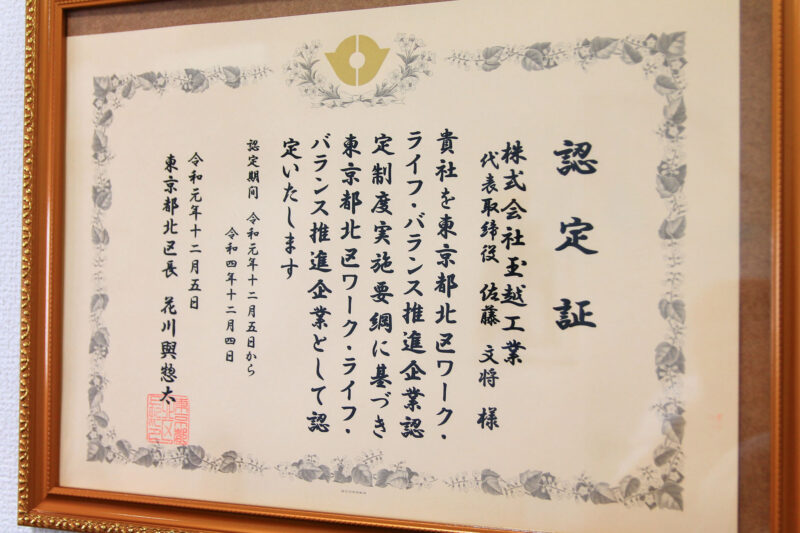 認定証
株式会社玉越工業
代表取締役 佐藤 文将 様
貴社を東京都北区ワーク・
ライフ・バランス推進企業認
定制度実施要綱に基づき
東京都北区ワーク・ライフ・
バランス推進企業として認
定いたします
認定期间 令和元年十二月五日から
令和四年十二月四日
令和元年十二月五日
東京都北区長 花川與惣太